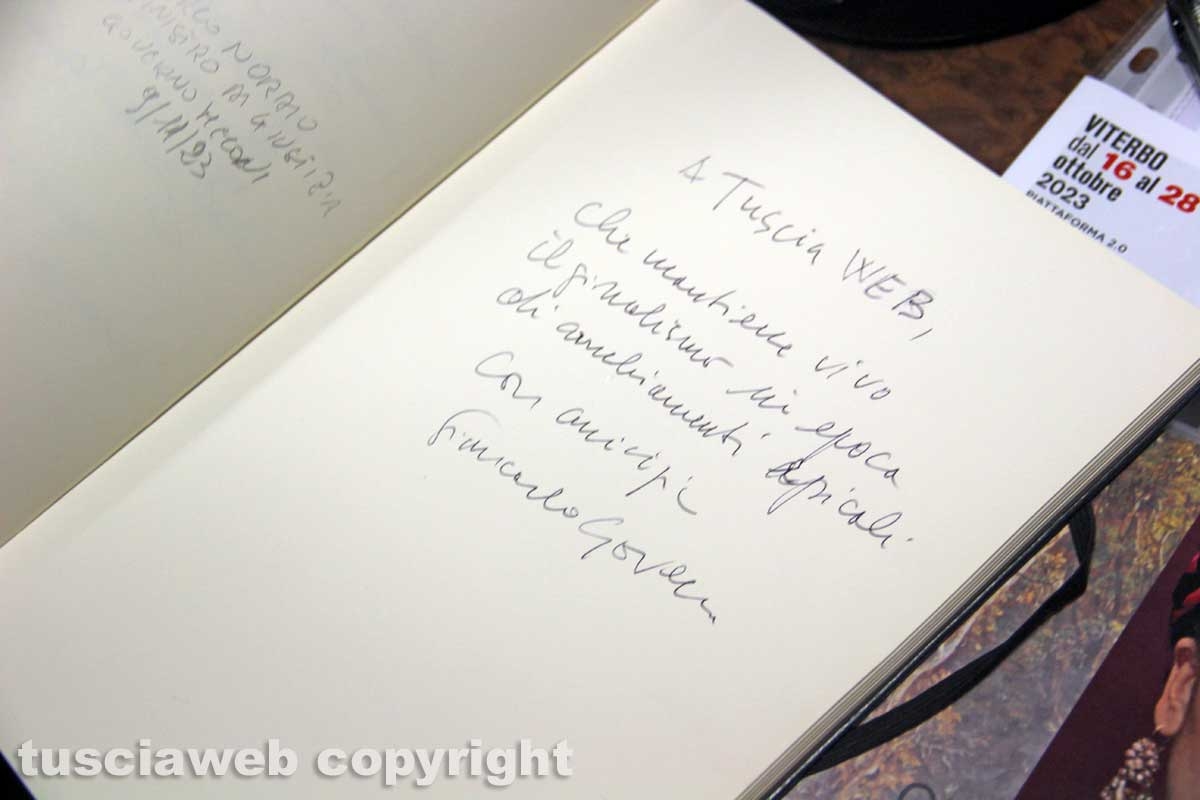 NORDIO
MINISTRO DI GIUSTIZIA
GOVERNO MELONI
9/11/23
A Tuscia WEB,
che mantiene vivo
il giornalismo in epoca
di cambiamenti epocali
Con amicizia
Giancarlo Governi
VITERBO
dal 16 al 28
ottobre
2023
PIATTAFORMA 2.0
tusciaweb copyright